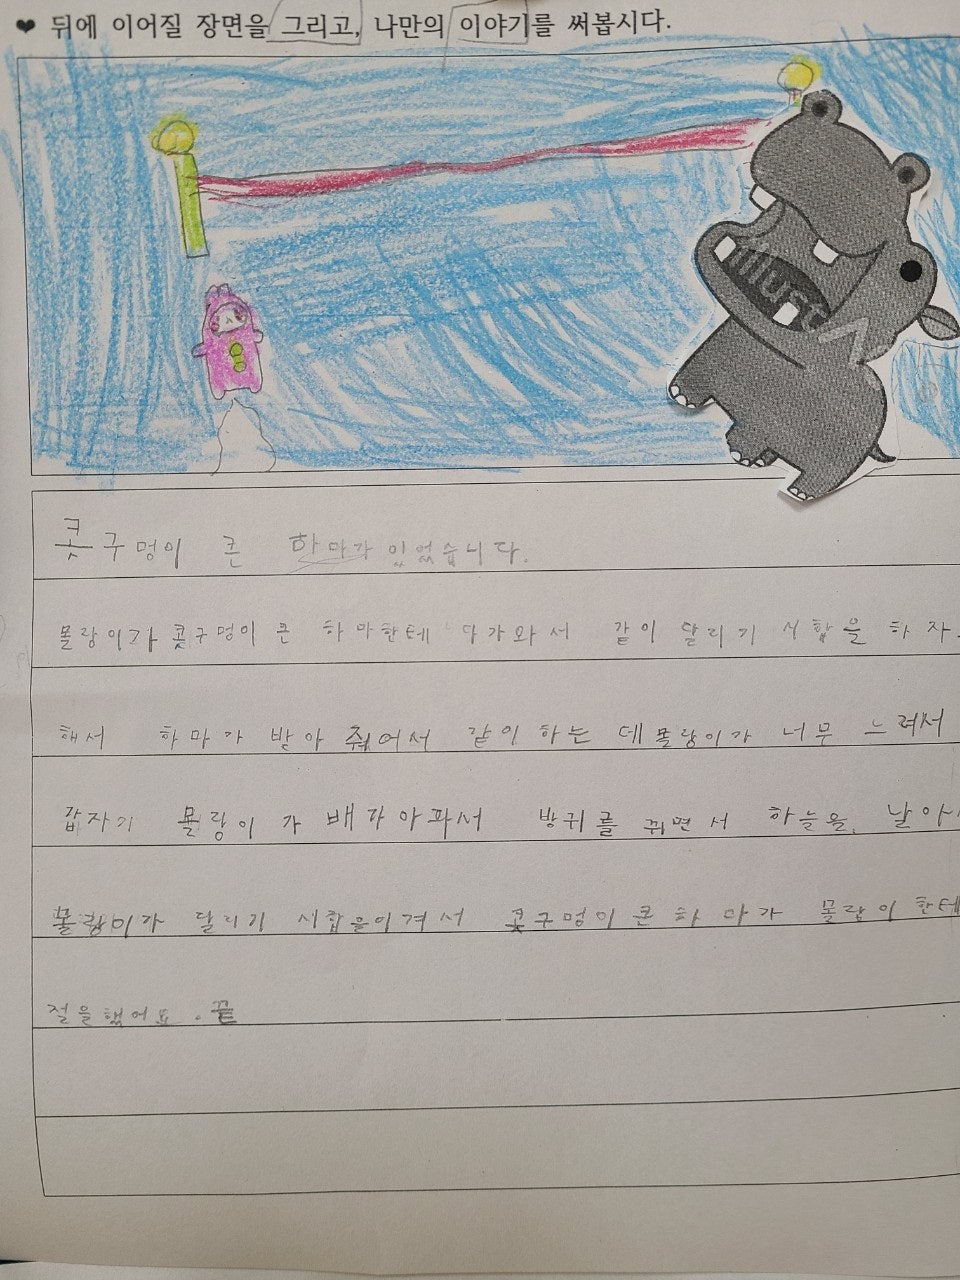 ❤ 뒤에 이어질 장면을 그리고, 나만의 이야기를 써봅시다.
콧구멍이 큰 하마가 있었습니다.
몰랑이가 콧구멍이 큰 하마한테 다가와서 같이 달리기 시합을 하자.
해서 하마가 받아 줬어서 같이 하는데 몰랑이가 너무 느려서
갑자기 몰랑이가 배가아파서 방귀를 뀌면서 하늘을 날아
몰랑이가 달리기 시합을이겨서 콧구멍이큰하마가 몰랑이한테
절을했어요. 끝